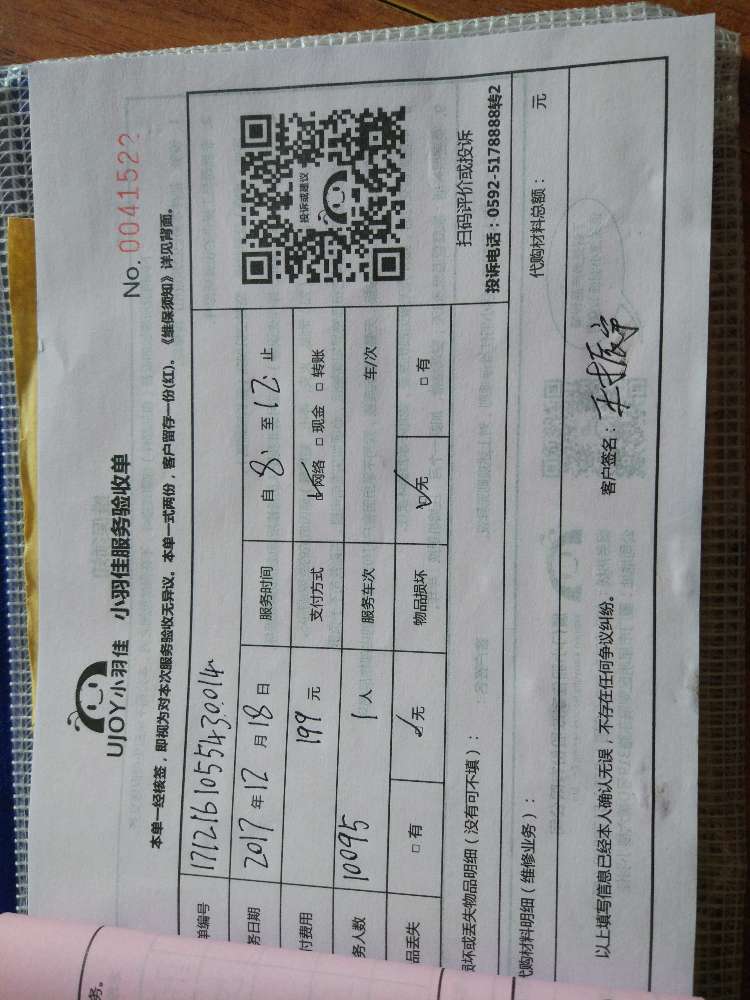 UJOY小羽佳 小羽佳服务验收单
No. 0041522
本单一经核签，即视为对本次服务验收无异议。本单一式两份，客户留存一份(红)。《维保须知》详见背面。
单编号 1712161055430014
务日期 2017 年 12 月 18 日 服务时间 自 8: 至 12: 止
付费用 199 元 支付方式 ☑网络 □ 现金 □ 转账
务人数 10095 1 人 服务车次 车/次
品丢失 □ 有 ☑无 物品损坏 ☑无 □ 有
投诉或建议
扫码评价或投诉
投诉电话：0592-5178888转2
损坏或丢失物品明细（没有可不填）：
代购材料明细（维修业务）： 代购材料总额： 元
以上填写信息已经本人确认无误，不存在任何争议纠纷。 客户签名：
务。